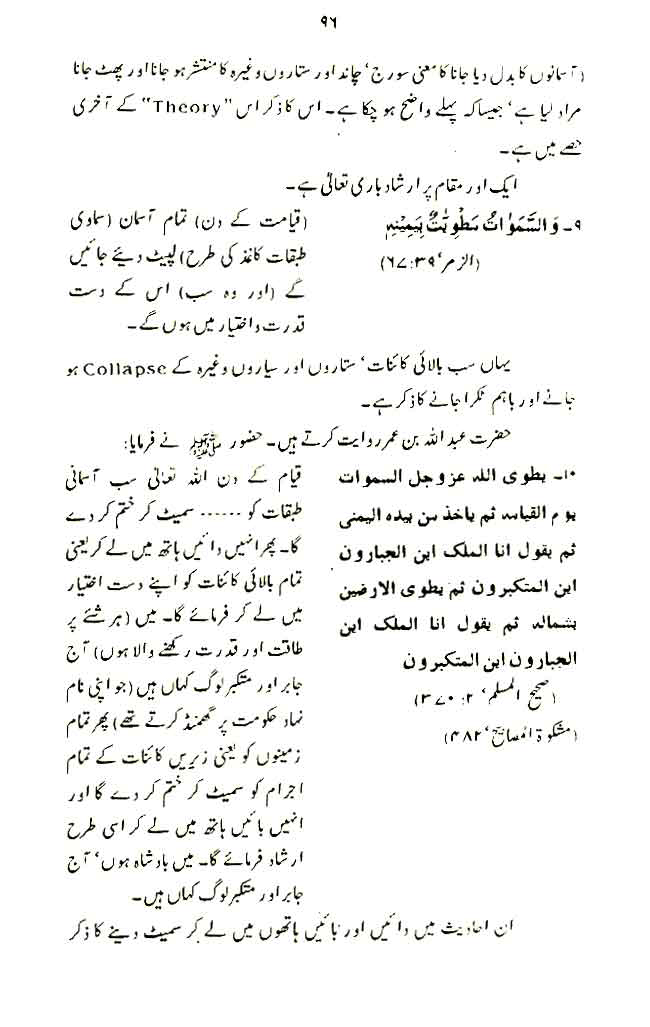 ۹۶
(آسمانوں کا بدل دیا جانا کا معنی سورج، چاند اور ستاروں وغیرہ کا منتشر ہو جانا اور پھٹ جانا
مراد لیا ہے، جیسا کہ پہلے واضح ہو چکا ہے۔ اس کا ذکر اس "Theory" کے آخری
حصے میں ہے۔
ایک اور مقام پر ارشاد باری تعالیٰ ہے۔
۹۔ وَالسَّمٰوٰتُ مَطْوِيّٰتٌۢ بِيَمِيْنِهٖ
(الزمر، ۳۹:۶۷)
(قیامت کے دن) تمام آسمان (سماوی
طبقات کاغذ کی طرح) لپیٹ دیئے جائیں
گے (اور وہ سب) اس کے دست
قدرت و اختیار میں ہوں گے۔
یہاں سب بالائی کائنات، ستاروں اور سیاروں وغیرہ کے Collapse ہو
جانے اور باہم ٹکرا جانے کا ذکر ہے۔
حضرت عبد اللہ بن عمر روایت کرتے ہیں۔ حضور ﷺ نے فرمایا:
۱۰۔ یطوی اللہ عزوجل السموات
یوم القیامہ ثم یاخذ من بیدہ الیمنی
ثم یقول انا الملک این الجبارون
این المتکبرون ثم یطوی الارضین
بشمالہ ثم یقول انا الملک این
الجبارون این المتکبرون
(صحیح المسلم، ۲: ۳۷۰)
(مشکوۃ المصابیح، ۴۸۲)
قیام کے دن اللہ تعالیٰ سب آسمانی
طبقات کو ...... سمیٹ کر ختم کر دے
گا۔ پھر انہیں دائیں ہاتھ میں لے کر یعنی
تمام بالائی کائنات کو اپنے دست اختیار
میں لے کر فرمائے گا۔ میں (ہر شئے پر
طاقت اور قدرت رکھنے والا ہوں) آج
جابر اور متکبر لوگ کہاں ہیں (جو اپنی نام
نہاد حکومت پر گھمنڈ کرتے تھے) پھر تمام
زمینوں کو یعنی زیریں کائنات کے تمام
اجرام کو سمیٹ کر ختم کر دے گا اور
انہیں بائیں ہاتھ میں لے کر اسی طرح
ارشاد فرمائے گا۔ میں بادشاہ ہوں، آج
جابر اور متکبر لوگ کہاں ہیں۔
ان احادیث میں دائیں اور بائیں ہاتھوں میں لے کر سمیٹ دینے کا ذکر